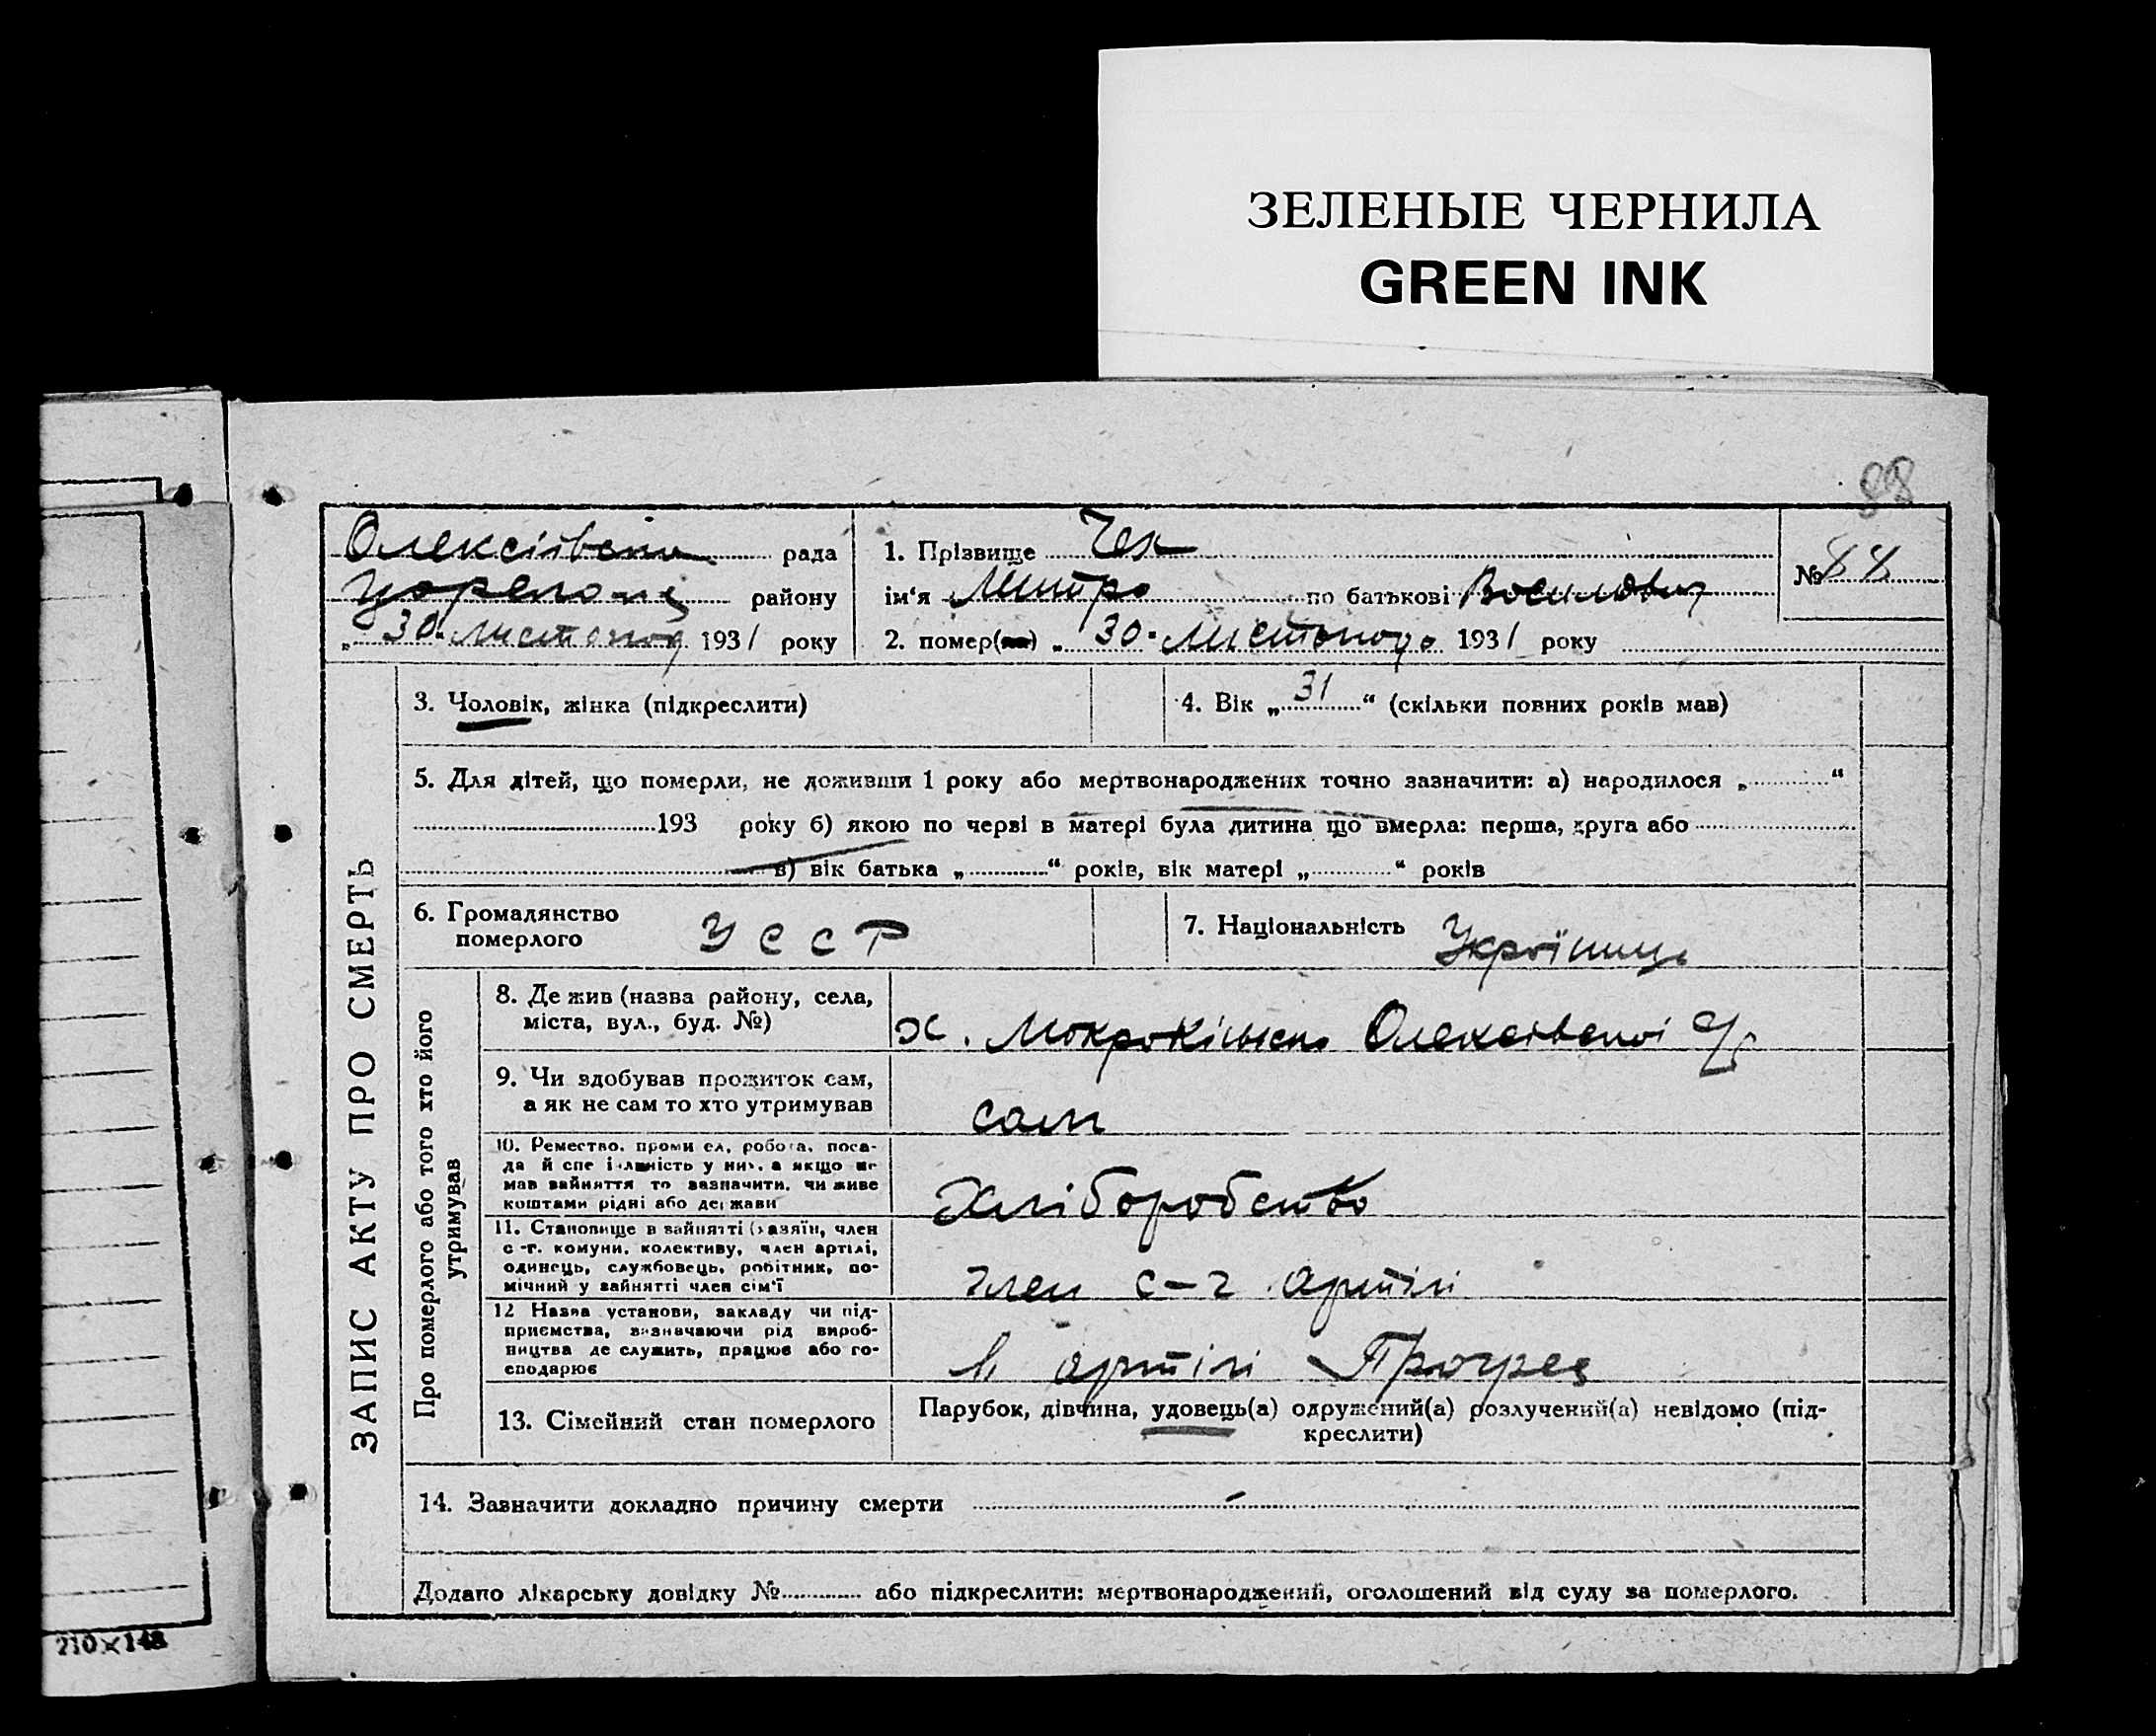 ЗЕЛЕНЫЕ ЧЕРНИЛА
GREEN INK
88
Олексіївська рада
району
„ 30 " листопад 1931 року
1. Прізвище Чех
ім'я Митро по батькові Василович
2. помер(ла) „ 30 " листопада 1931 року
№ 88
ЗАПИС АКТУ ПРО СМЕРТЬ
3. Чоловік, жінка (підкреслити)
4. Вік „ 31 “ (скільки повних років мав)
5. Для дітей, що померли, не доживши 1 року або мертвонароджених точно зазначити: а) народилося „ “
193 року б) якою по черві в матері була дитина що вмерла: перша, друга або
в) вік батька „ “ років, вік матері „ “ років
6. Громадянство
померлого
У С С Р
7. Національність Українець
Про померлого або того хто його
утримував
8. Де жив (назва району, села,
міста, вул., буд. №)
х. Олексіївської
9. Чи здобував прожиток сам,
а як не сам то хто утримував
сам
10. Ремество, промисел, робота, поса-
да й спеціальність у них, а якщо не
мав зайняття то зазначити, чи живе
коштами рідні або держави
Хліборобство
11. Становище в зайнятті (хазяїн, член
с-г. комуни, колективу, член артілі,
одинець, службовець, робітник, по-
мічний у зайнятті член сім'ї
член с-г артілі
12 Назва установи, закладу чи під-
приємства, зазначаючи рід вироб-
ництва де служить, працює або го-
сподарює
в артілі Прогрес
13. Сімейний стан померлого
Парубок, дівчина, удовець(а) одружений(а) розлучений(а) невідомо (під-
креслити)
14. Зазначити докладно причину смерти –
Додано лікарську довідку № або підкреслити: мертвонароджений, оголошений від суду за померлого.
210×148